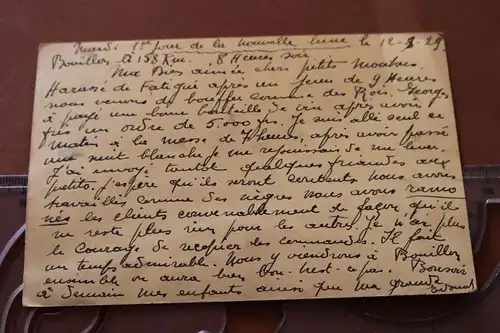 Mardi 1er jour de la nouvelle lune le 12-3-29
Bouillon à 158 Km. 8 Heures soir
Ma Bien aimée chers petits
Harassé de Fatigue après un jeun de 9 Heures
nous venons de bouffer comme des Rois. Georges
a payé une bonne bouteille de vin après avoir
pris un ordre de 5.000 frs. Je suis allé seul ce
matin à la messe de 7 heures, après avoir passé
une nuit blanche je me réjouissais de me lever.
J'ai envoyé tantôt quelques friandises aux
petits. J'espère qu'ils seront contents nous avons
travaillés comme des nègres nous avons ramo
nés les clients convenablement de façon qu'il
ne reste plus rien pour les autres. Je n'ai plus
le courage de recopier les commandes. Il fait
un temps admirable. Nous viendrons à Bouillon
ensemble ce sera bien bon. N'est-ce pas. Bonsoir
à demain mes enfants ainsi que ma grande
Edmond